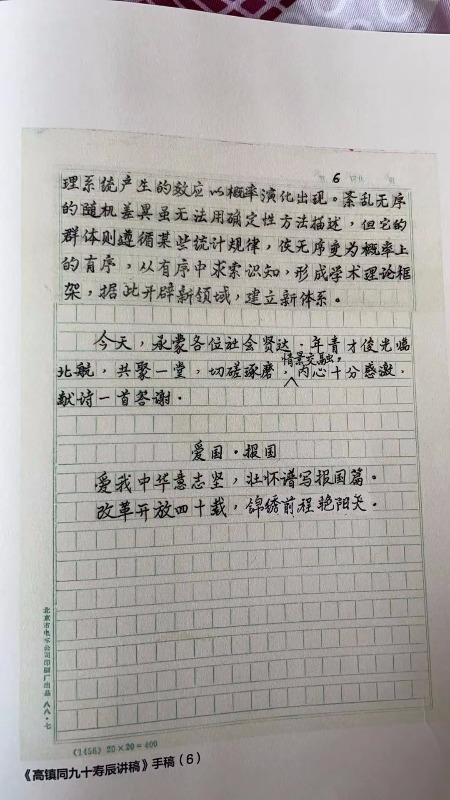 6
理系统产生的效应以概率演化出现。紊乱无序
的随机差异虽无法用确定性方法描述，但它的
群体则遵循某些统计规律，使无序变为概率上
的有序，从有序中求索识知，形成学术理论框
架，据此开辟新领域，建立新体系。
今天，承蒙各位社会贤达、年青才俊光临
北航，共聚一堂，切磋琢磨，情景交融，内心十分感激，
献诗一首答谢。
爱国·报国
爱我中华意志坚，壮怀谱写报国篇。
改革开放四十载，锦绣前程艳阳天。
北京市电车公司印刷厂出品 八八·七
(1456) 20×20=400
《高镇同九十寿辰讲稿》手稿（6）